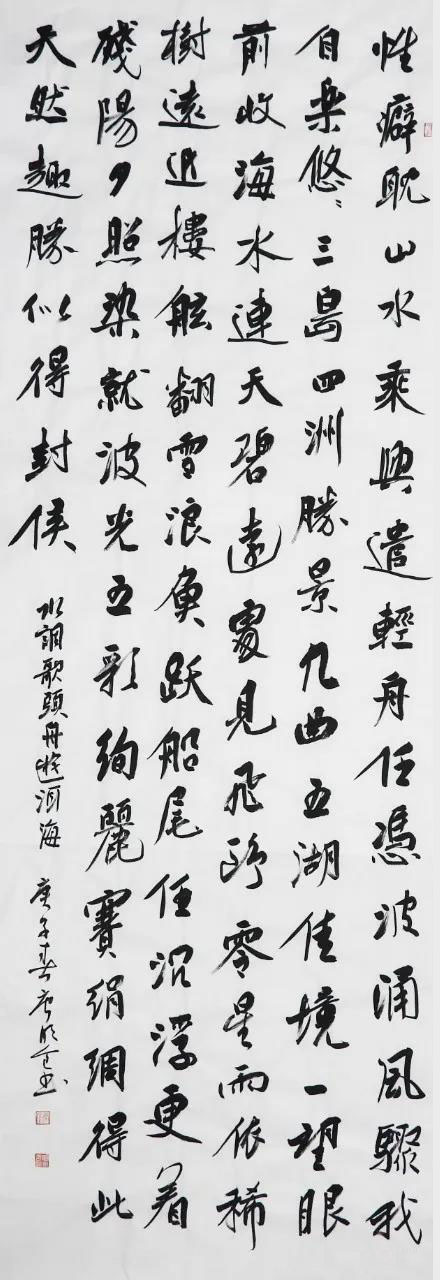 性癖耽山水乘興遣輕舟任憑波涌風驟我
自樂悠〻三島四洲勝景九曲五湖佳境一望眼
前收海水連天碧遠處見飛鷗零星雨依稀
樹遠近樓舷翻雪浪魚跃船尾任沉浮更着
殘陽夕照染就波光五彩絢麗賽絹綢得此
天然趣勝似得封侯
水調歌頭舟遊洱海
庚子春唐书